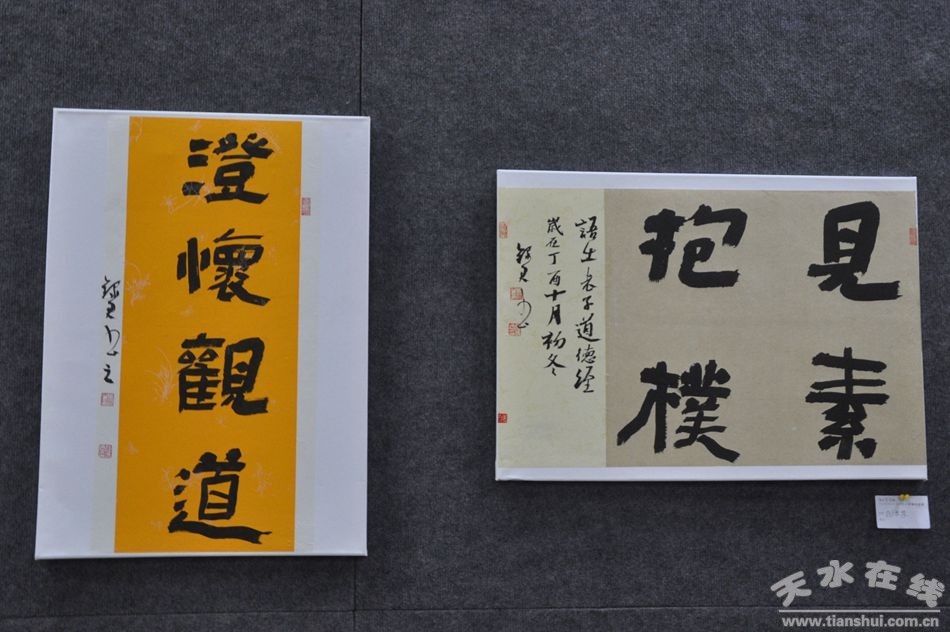 澄懷觀道
見素
抱樸
語出老子道德經
歲在丁酉十月初冬
天水在线
www.tianshui.com.cn